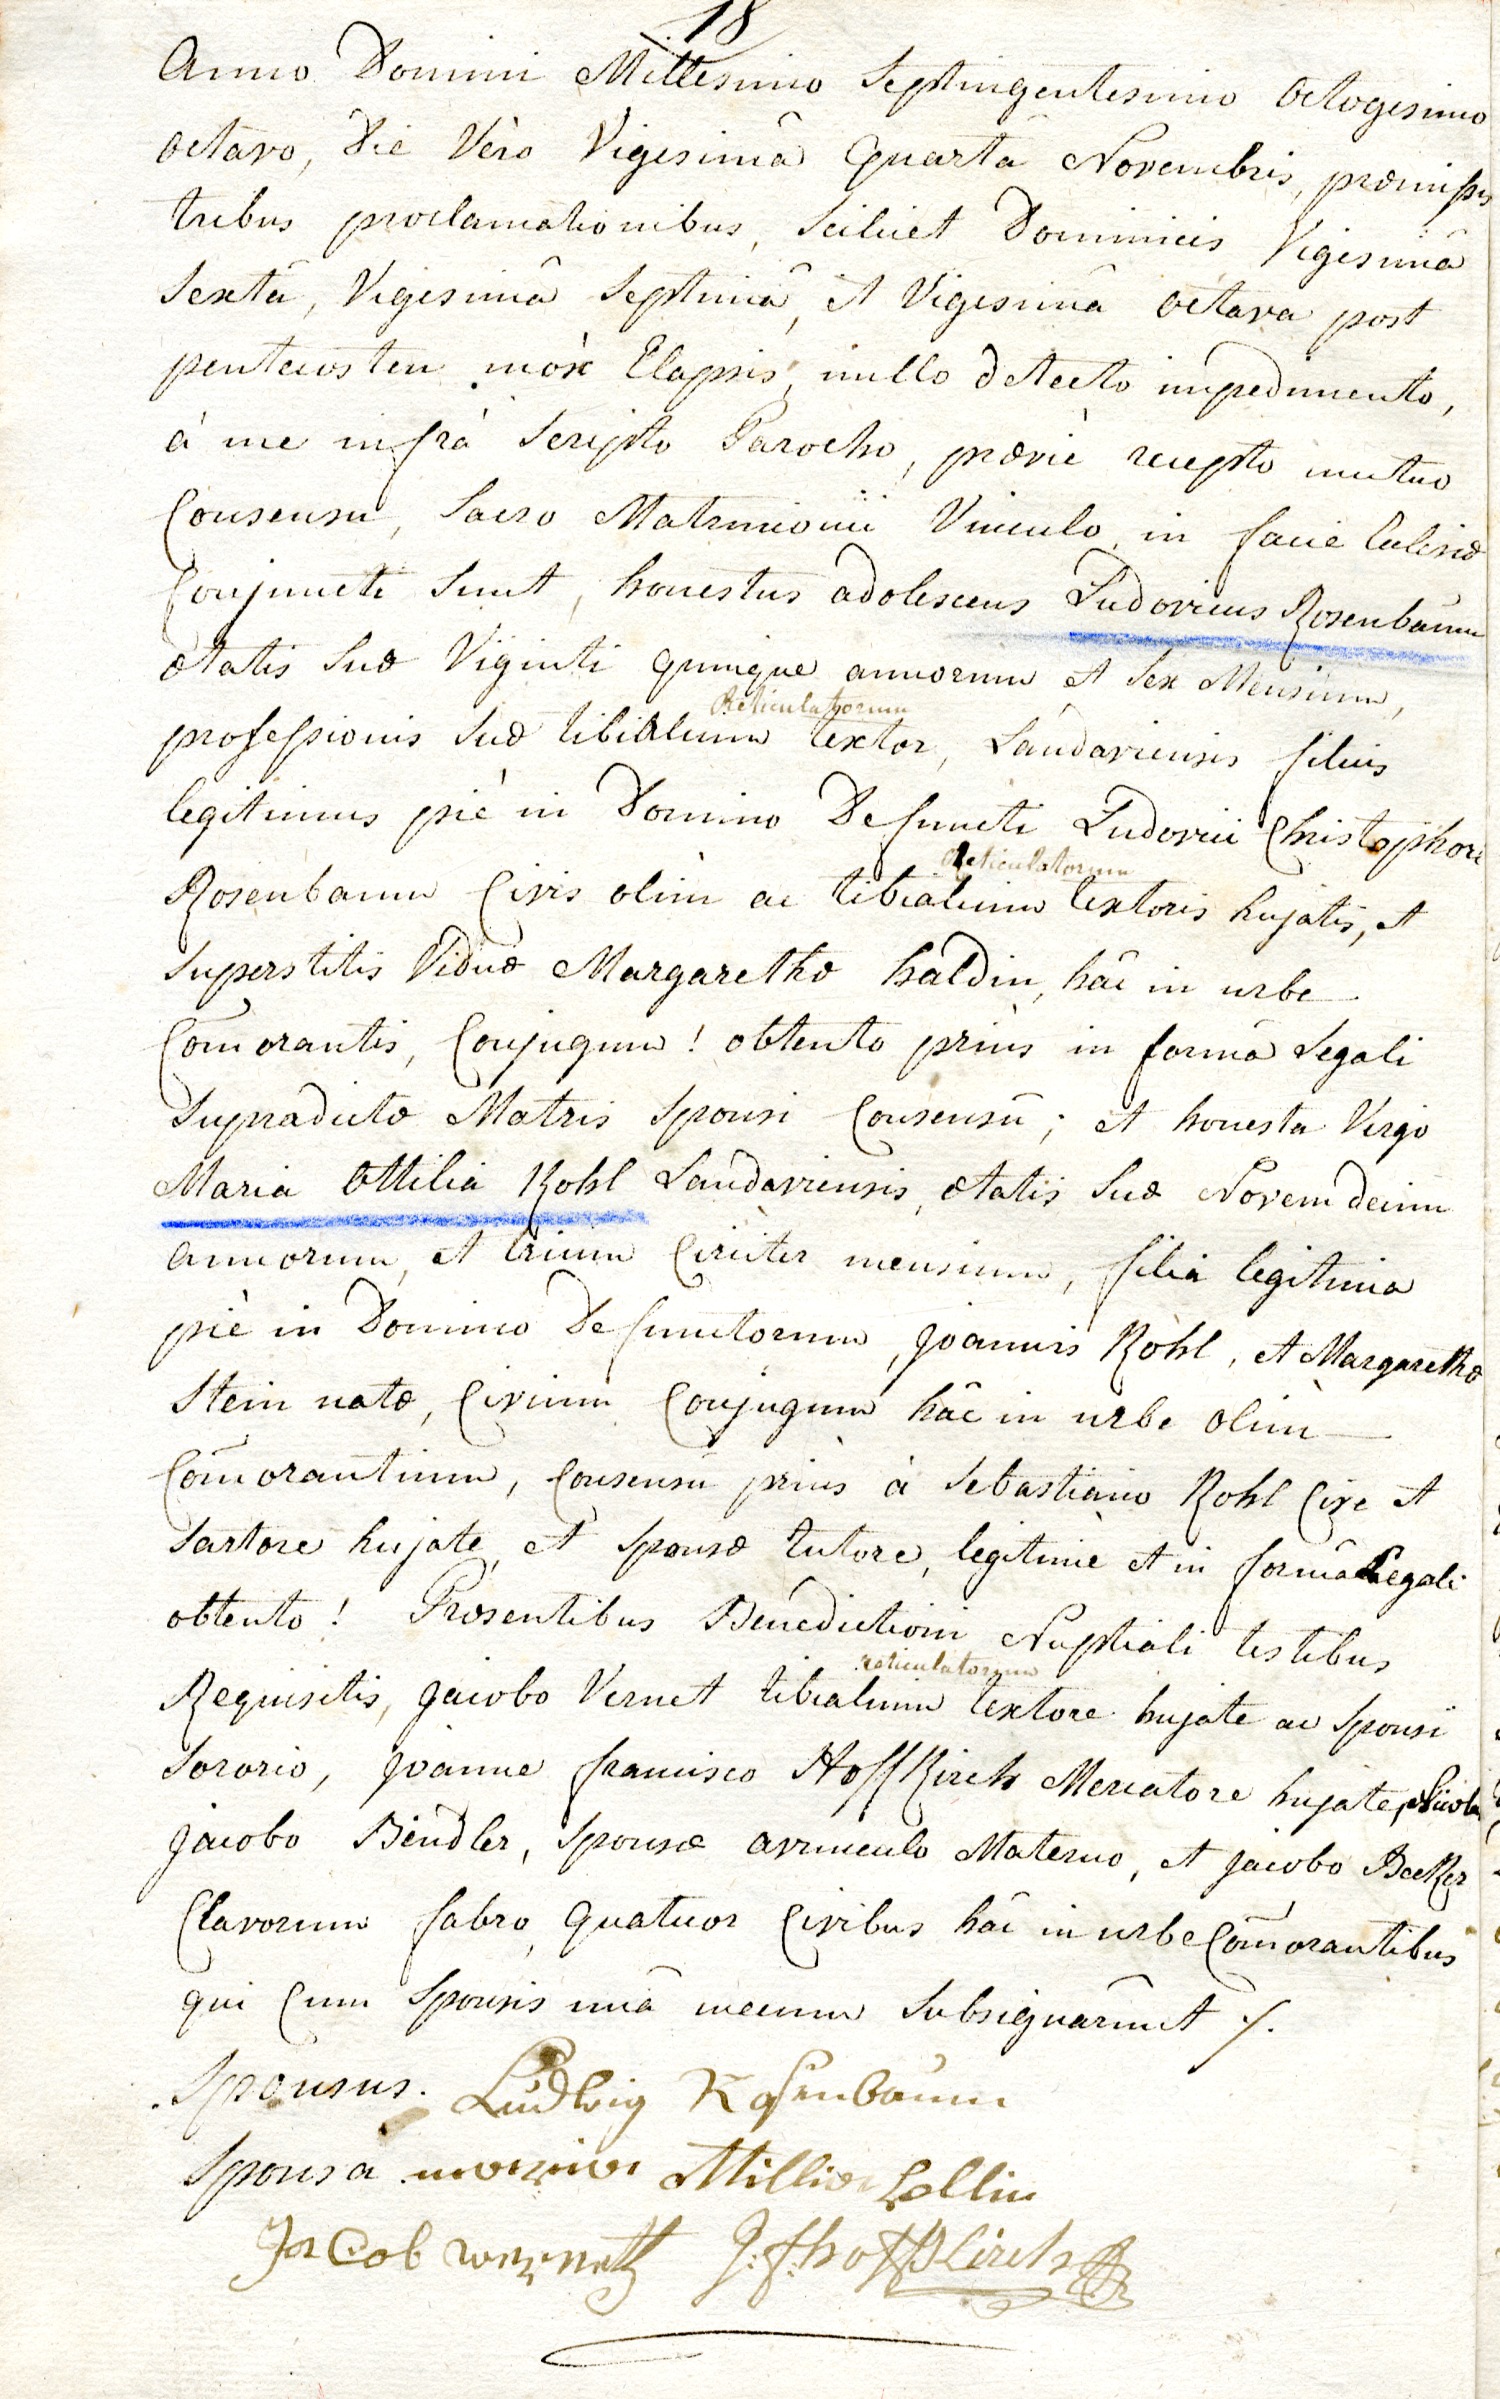 18
Anno Domini Millesimo Septingentesimo Octogesimo
Octavo, Die Vero Vigesimâ Quartâ Novembris, præmissis
tribus proclamationibus, Scilicet Dominicis Vigesimâ
Sextâ, Vigesimâ Septimâ, et Vigesimâ Octava post
pentecosten mòx Elapsis, nullo detecto impedimento,
à me infrà Scripto Parocho, præviè recepto mutuo
Consensu, Sacro Matrimonii Vinculo, in facie Ecclesiæ
Conjuncti Sunt, honestus adolescens Ludovicus Rosenbaum
ætatis Suæ Viginti quinque annorum et Sex Mensium,
Reticulatorum
professionis Suæ tibialium textor, Landaviensis filius
legitimus piè in Domino Defuncti Ludovici Christophori
Reticulatorum
Rosenbaum Civis olim ac tibialium textoris hujatis, et
Superstitis Viduæ Margarethæ haldin, hâc in urbe
Com̄orantis, Conjugum! obtento priùs in formâ Legali
Supradictæ Matris Sponsi Consensu; et honesta Virgo
Maria Ottilia Kohl Landaviensis, ætatis Suæ Novemdecim
annorum, et trium Circiter mensium, filia legitima
piè in Domino Defunctorum, Joannis Kohl, et Margarethæ
Stein natæ, Civium Conjugum hâc in urbe olim
Com̄orantium, Consensu priùs à Sebastiano Kohl Cive et
Sartore hujate, et Sponsæ tutore, legitimè et in formâ Legali
obtento! Præsentibus Benedictioni Nuptiali testibus
reticulatorum
Requisitis, Jacobo Vernet tibialium textore hujate ac Sponsi
Sororio, Joanne francisco Hoffkirch Mercatore hujate,
Jacobo Bendler, Sponsæ avunculo Materno, et Jacobo Becker
Clavorum fabro, Quatuor Civibus hâc in urbe Com̄orantibus
qui Cum Sponsis unâ mecum Subsignarunt /.
Sponsus. Ludwig Rosenbaum
Sponsa maria Attillia Kollin
Jacob wernet J: f: hoffkirch